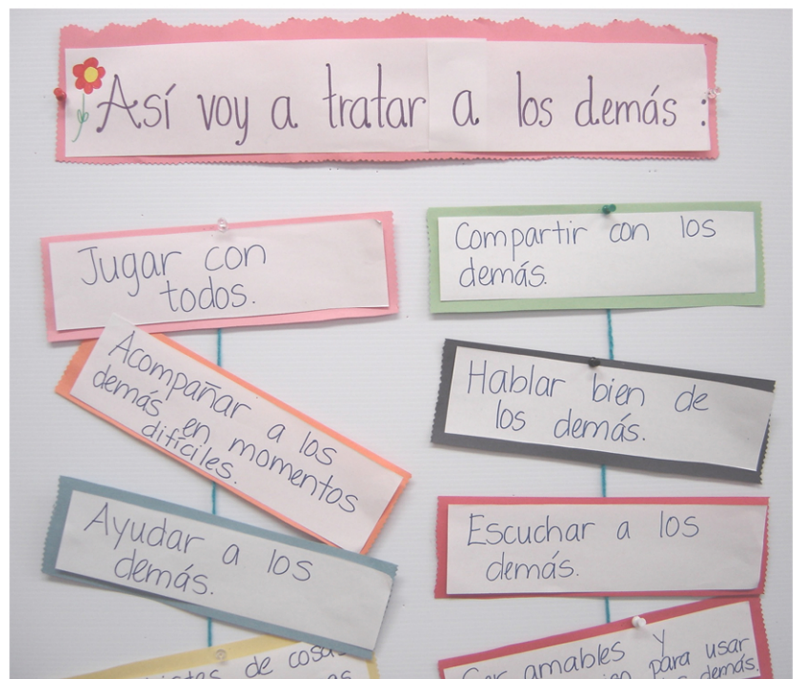 Así voy a tratar a los demás:
Jugar con
todos.
Acompañar a los
demás en momentos
difíciles.
Ayudar a los
demás.
de cosas
Compartir con los
demás.
Hablar bien de
los demás.
Escuchar a los
demás.
Ser amables y
para usar
demás.